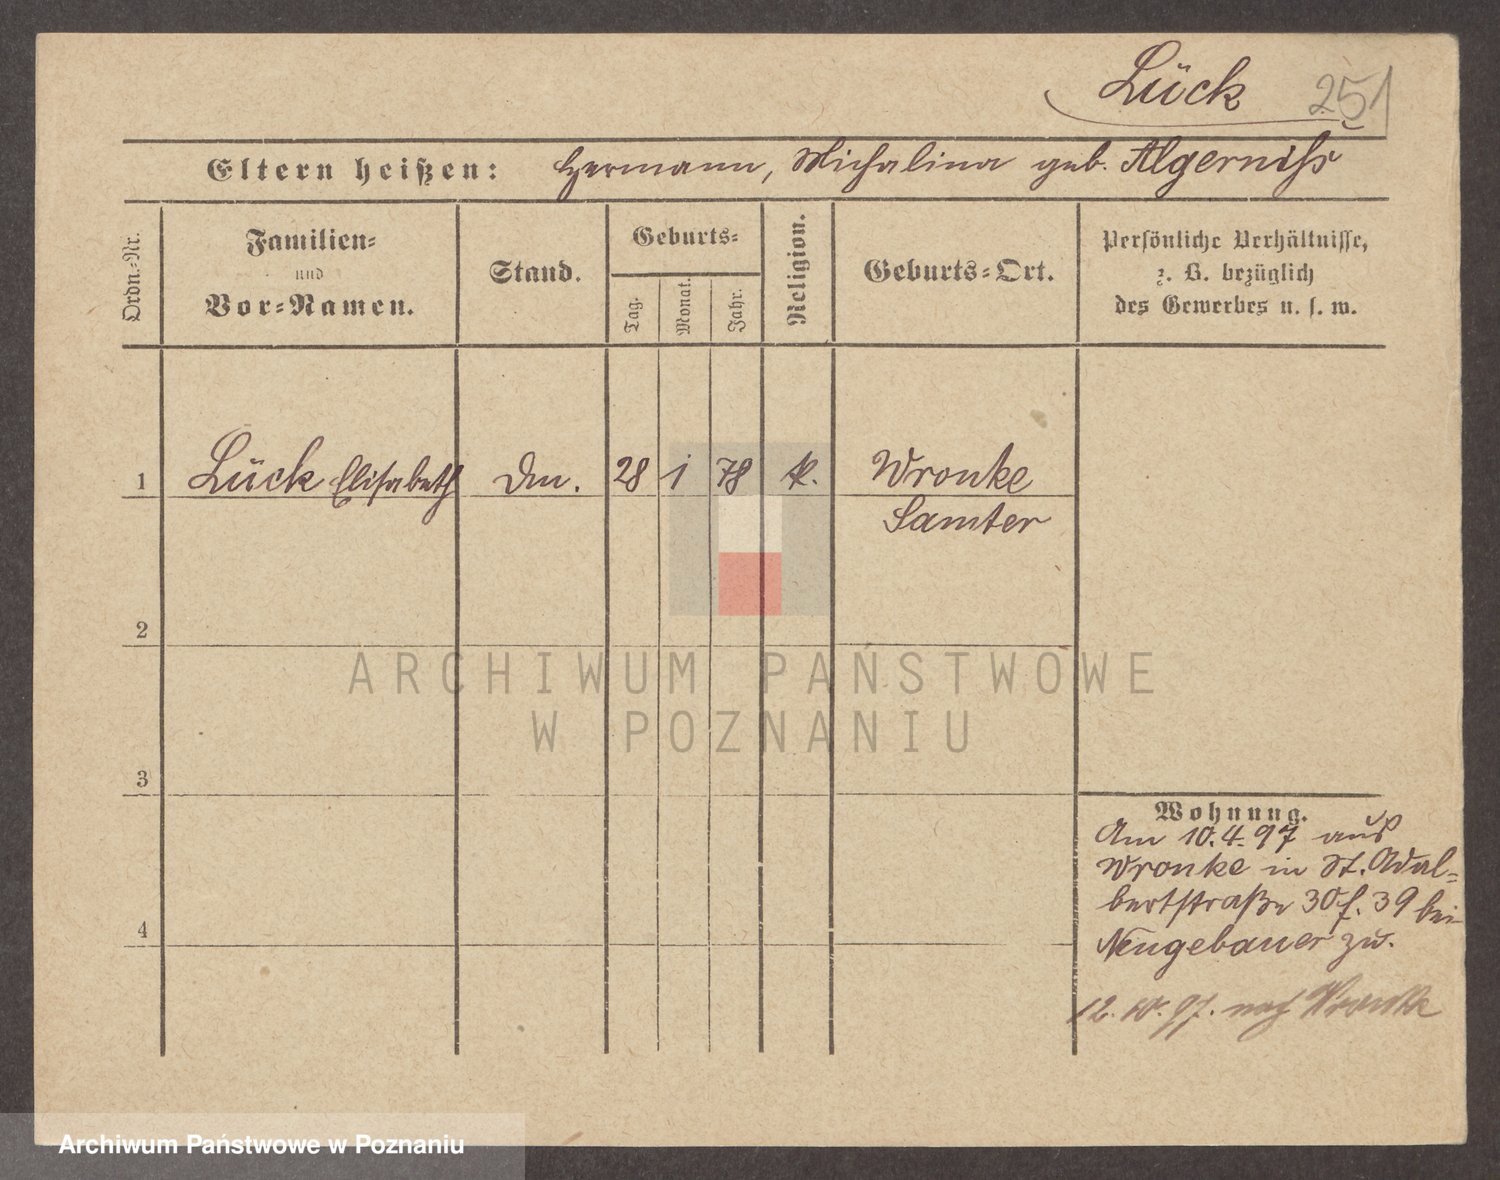 Lück 251
Eltern heißen: Hermann, Michalina geb. Algerniss
Ordn.-Nr.
Familien-
und
Vor-Namen.
Stand.
Geburts-
Tag.
Monat.
Jahr.
Religion.
Geburts-Ort.
Persönliche Verhältnisse,
z. B. bezüglich
des Gewerbes u. s. w.
1 Lück Elisabeth Dm. 28 1 78 k. Wronke
Samter
2
3
4
Wohnung.
Am 10.4.97 aus
Wronke in St. Adal-
bertstraße 30 f. 39 bei
Neugebauer zu.
12. 10. 97. nach Wronke
ARCHIWUM PAŃSTWOWE
W POZNANIU
Archiwum Państwowe w Poznaniu